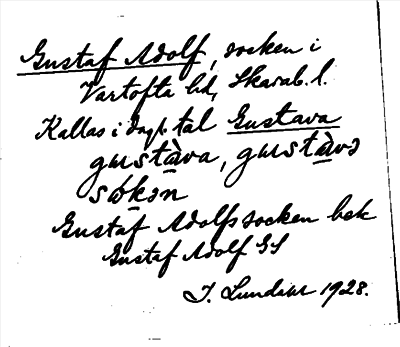 Gustaf Adolf, socken i
Vartofta hd, Skarab. l.
Kallas i dagl. tal Gustava
gustàva, gustàvə
søkən
Gustaf Adolfs socken bek
Gustaf Adolf GS
J. Lundar 1928.